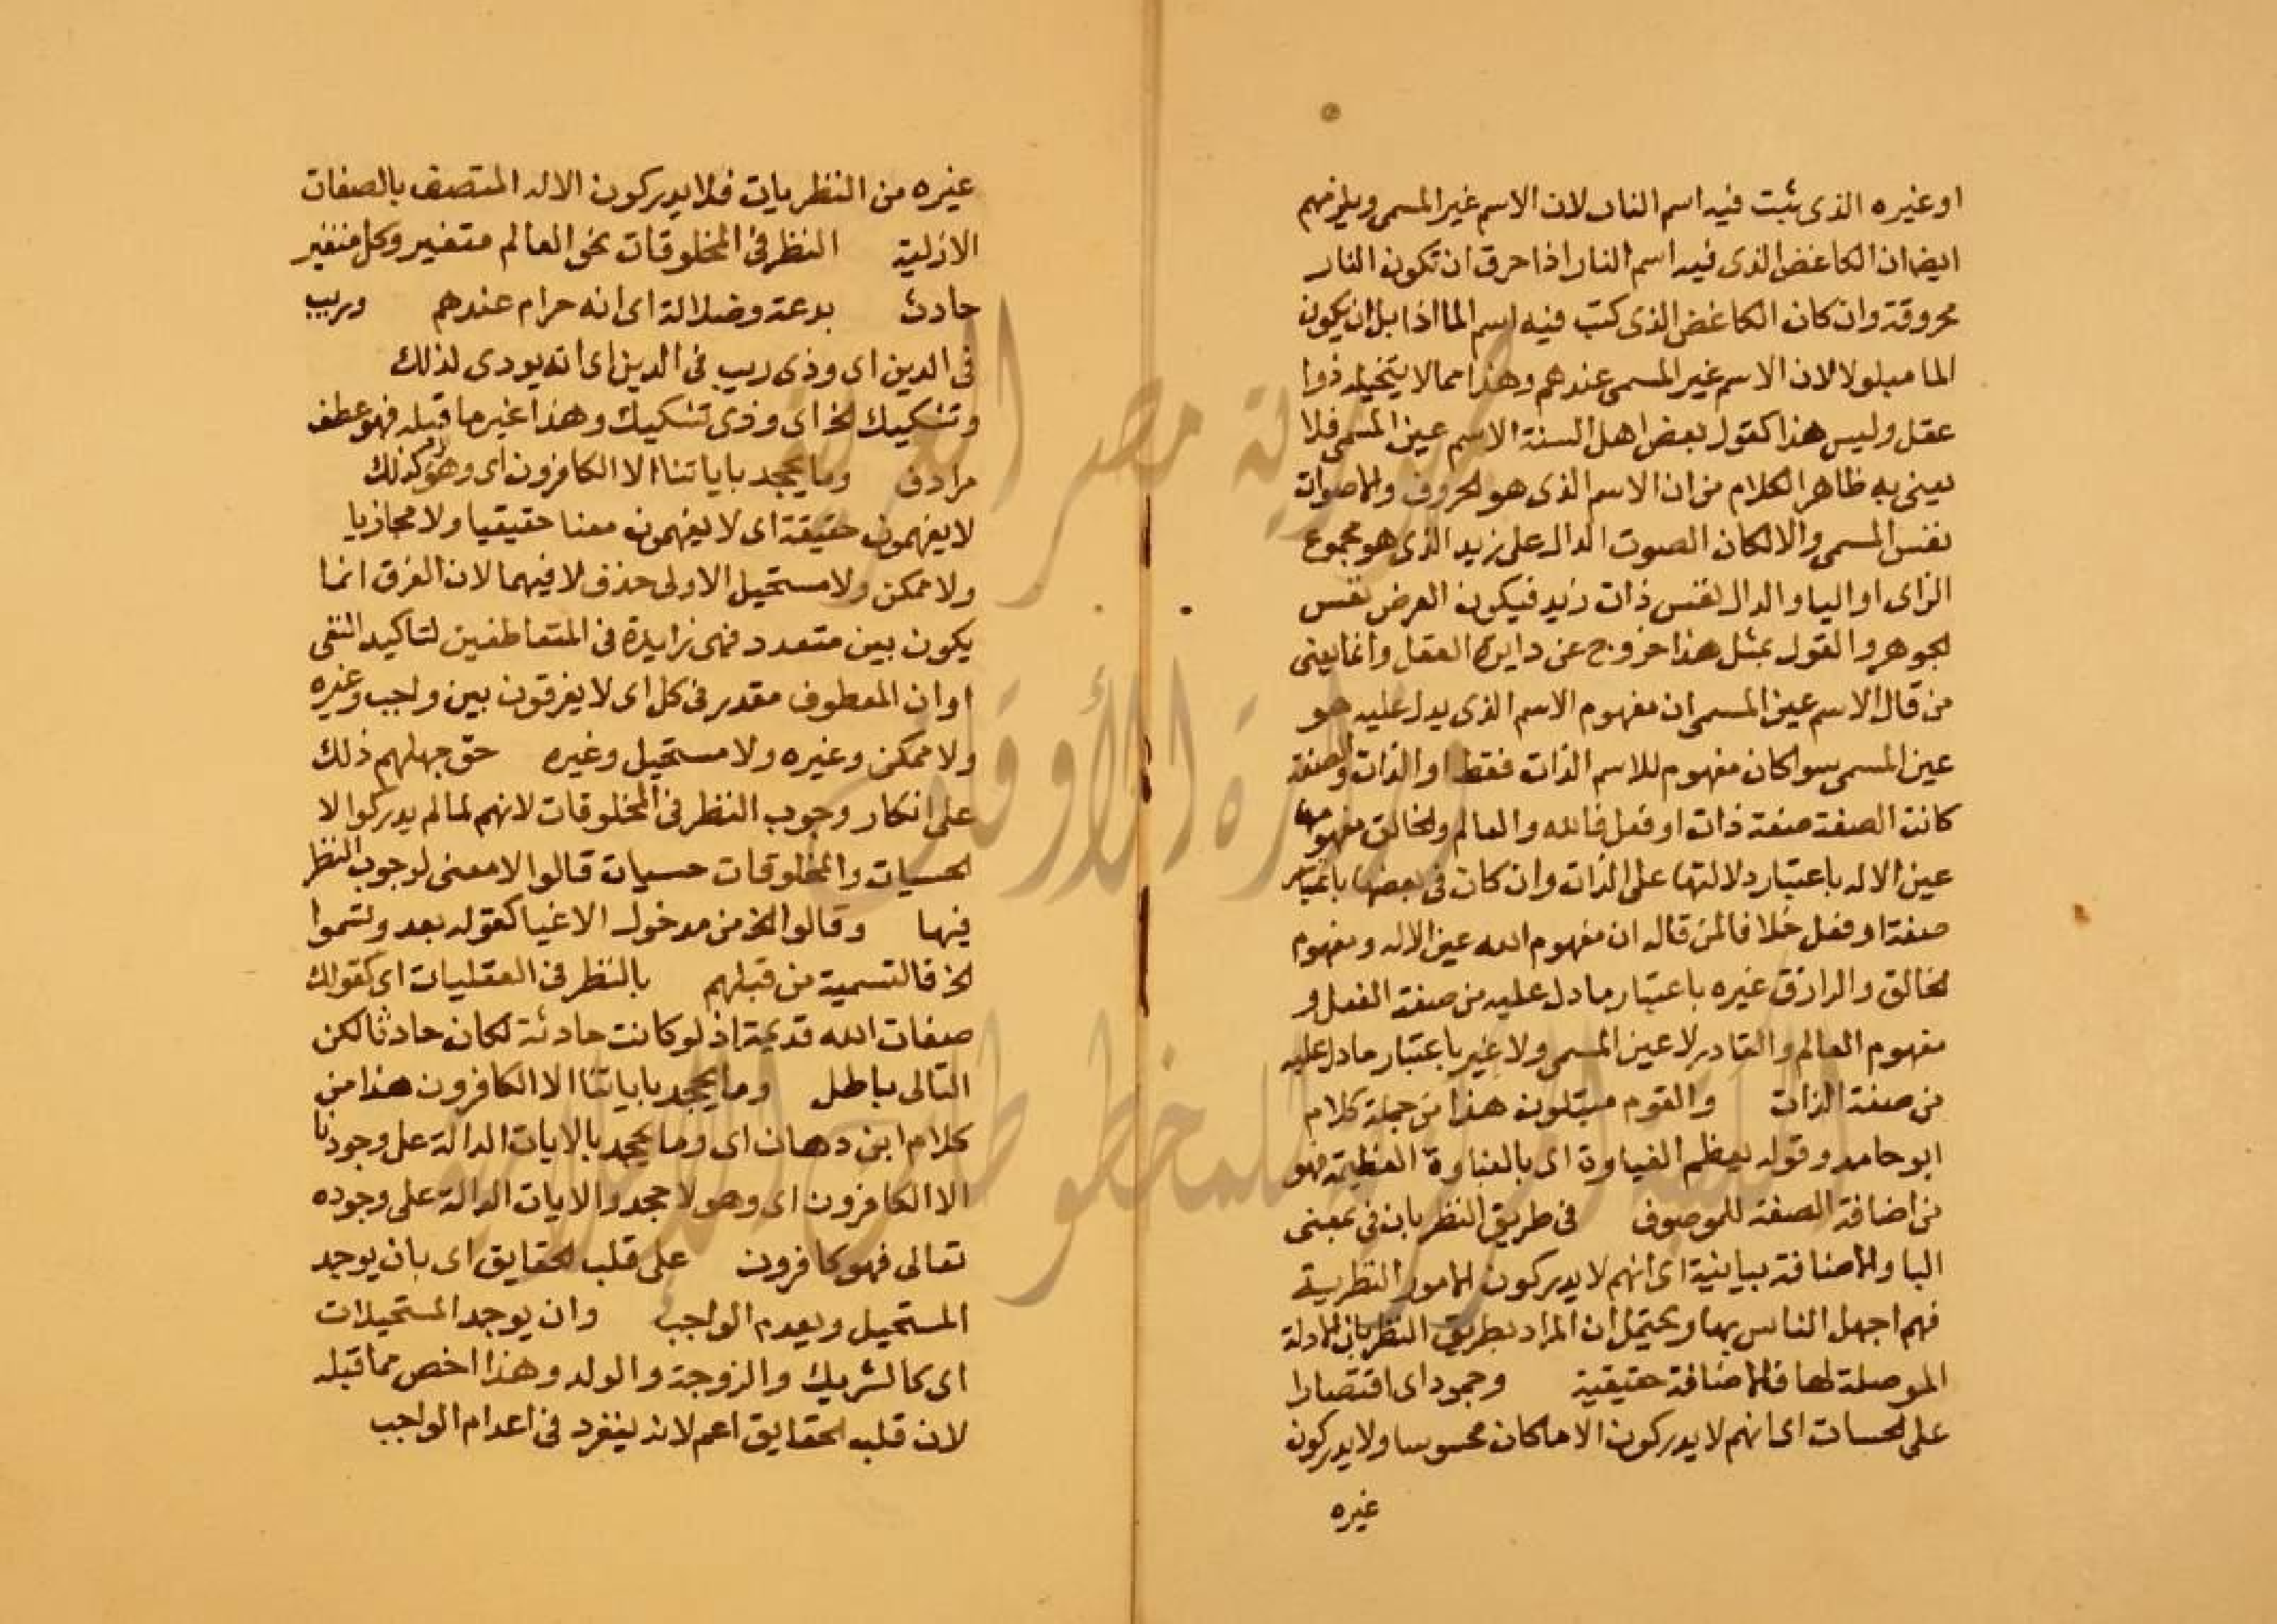 او غيره الذى ثبت فيه اسم النار لان الاسم غير المسمى ويلزمهم
ايضا ان الكاغض الذى فيه اسم النار اذا حرق ان تكون النار
محروقة وان كان الكاغض الذى كتب فيه اسم الما اذا بل ان يكون
الما مبلولا لان الاسم غير المسمى عندهم وهذا مما لا يتخيله ذوا
عقل وليس هذا كقول بعض اهل السنة الاسم عين المسمى فلا
يعنى به ظاهر الكلام من ان الاسم الذى هو الحروف والاصوات
نفس المسمى والا لكان الصوت الدال على زيد الذى هو مجموع
الزاى او اليا والدال نفس ذات زيد فيكون العرض نفس
الجوهر والقول بمثل هذا خروج عن دايرة العقل وانما يعنى
من قال الاسم عين المسمى ان مفهوم الاسم الذى يدل عليه هو
عين المسمى سوا كان مفهوم للاسم الذات فقط او الذات والصفة
كانت الصفة صفة ذات او فعل فالله والعالم والخالق مفهومها
عين الاله باعتبار دلالتها على الذات وان كان فى بعضها باعتبار
صفة او فعل خلافا لمن قال ان مفهوم الله عين الاله ومفهوم
الخالق والرازق غيره باعتبار ما دل عليه من صفة الفعل و
مفهوم العالم والقادر لا عين المسمى ولا غير باعتبار ما دل عليه
من صفة الذات والقوم مبتلون هذا من جملة كلام
ابو حامد وقوله بعظم الغباوة اى بالغباوة العظيمة فهو
من اضافة الصفة للموصوف فى طريق النظر بان فى بمعنى
البا والاضافة بيانية اى انهم لا يدركون الامور النظرية
فهم اجهل الناس بها ويحتمل ان المراد بطريق النظر بان الادلة
الموصلة لها فالاضافة حقيقية وجمود اى اقتصارا
على الحسات اى انهم لا يدركون الا ما كان محسوسا ولا يدركون
غيره
غيره من النظريات فلا يدركون الاله المتصف بالصفات
الازلية النظر فى المخلوقات نحو العالم متغير وكل متغير
حادث بدعة وضلالة اى انه حرام عندهم وريب
فى الدين اى وذى ريب فى الدين اى انه يودى لذلك
وتشكيك الخ اى وذى تشكيك وهذا غير ما قبله فهو عطف
مرادف وما يجحد باياتنا الا الكافرون اى وهو كذلك
لا يفهمون حقيقة اى لا يفهمون معنا حقيقيا ولا مجازيا
ولا ممكن ولا مستحيل الاولى حذف لا فيهما لان الفرق انما
يكون بين متعدد فهى زايدة فى المتعاطفين لتاكيد النفى
او ان المعطوف مقدر فى كل اى لا يفرقون بين واجب وغيره
ولا ممكن وغيره ولا مستحيل وغيره حق جهلهم ذلك
على انكار وجوب النظر فى المخلوقات لانهم لما لم يدركوا الا
الحسيات والمخلوقات حسيات قالوا لا معنى لوجوب النظر
فيها وقالوا الخ من مدخول الاغيا كقوله بعد وتسموا
الخ فالتسمية من قبلهم بالنظر فى العقليات اى كقولك
صفات الله قديمة اذ لو كانت حادثة لكان حادثا لكن
التالى باطل وما يجحد باياتنا الا الكافرون هذا من
كلام ابن دهان اى وما يجحد بالايات الدالة على وجودنا
الا الكافرون اى وهولا جحدوا الايات الدالة على وجوده
تعالى فهو كافرون على قلب الحقايق اى بان يوجد
المستحيل ويعدم الواجب وان يوجد المستحيلات
اى كالشريك والزوجة والولد وهذا اخص مما قبله
لان قلب الحقايق اعم لانه ينفرد فى اعدام الواجب